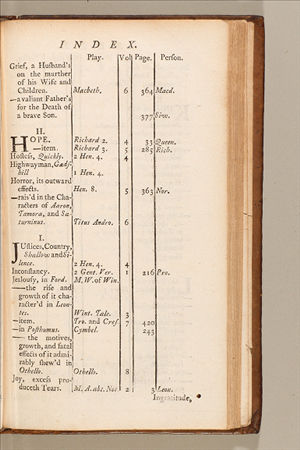 INDEX.
Play. Vol Page. Person.
Grief, a Husband's
on the murther
of his Wife and
Children. Macbeth. 6 364 Macd.
—a valiant Father's
for the Death of
a brave Son. 377 Siw.
H.
HOPE, Richard 2. 4 33 Queen.
—item. Richard 3. 5 285 Rich.
Hostess, Quickly. 2 Hen. 4. 4
Highwayman, Gads-
hill 1 Hen. 4.
Horror, its outward
effects. Hen. 8. 5 363 Nor.
—rais'd in the Cha-
racters of Aaron,
Tamora, and Sa-
turninus. Titus Andro. 6
I.
JUstices, Country,
Shallow and Si-
lence. 2 Hen. 4. 4
Inconstancy. 2 Gent. Ver. 1 216 Pro.
Jealousy, in Ford. M. W. of Win.
——the rise and
growth of it cha-
racter'd in Leon-
tes. Wint. Tale. 3
—item. Tro. and Cres 7 420
—in Posthumus. Cymbel. 243
— the motives,
growth, and fatal
effects of it admi-
rably shew'd in
Othello. Othello. 8
Joy, excess pro-
duceth Tears. M. A. abt. Not 2 3 Leon.
Ingratitude,